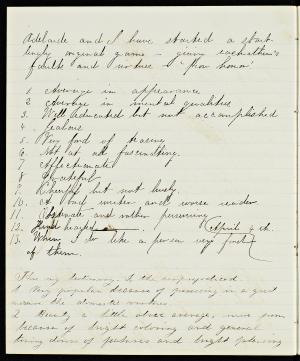 Adelaide and I have started a start-
lingly original game - giving each other's
faults and virtues "upon honor"
1 Average in appearance
2 Average in mental qualities
3. Well educated but not accomplished
4. Jealous
5. Very fond of teasing
6. Not at all fascinating.
7. Affectionate
8. Grateful
9. Cheerful but not lively.
10. A bad writer and worse reader
11. Obstinate and rather persevering
12. Kind hearted (April 9th.
13. When I do like a person very fond
of them.
1 Very popular because of possessing in a great
measure the domestic virtues.
2. Beauty a little above average, more from
because of bright coloring and general
of features and bright